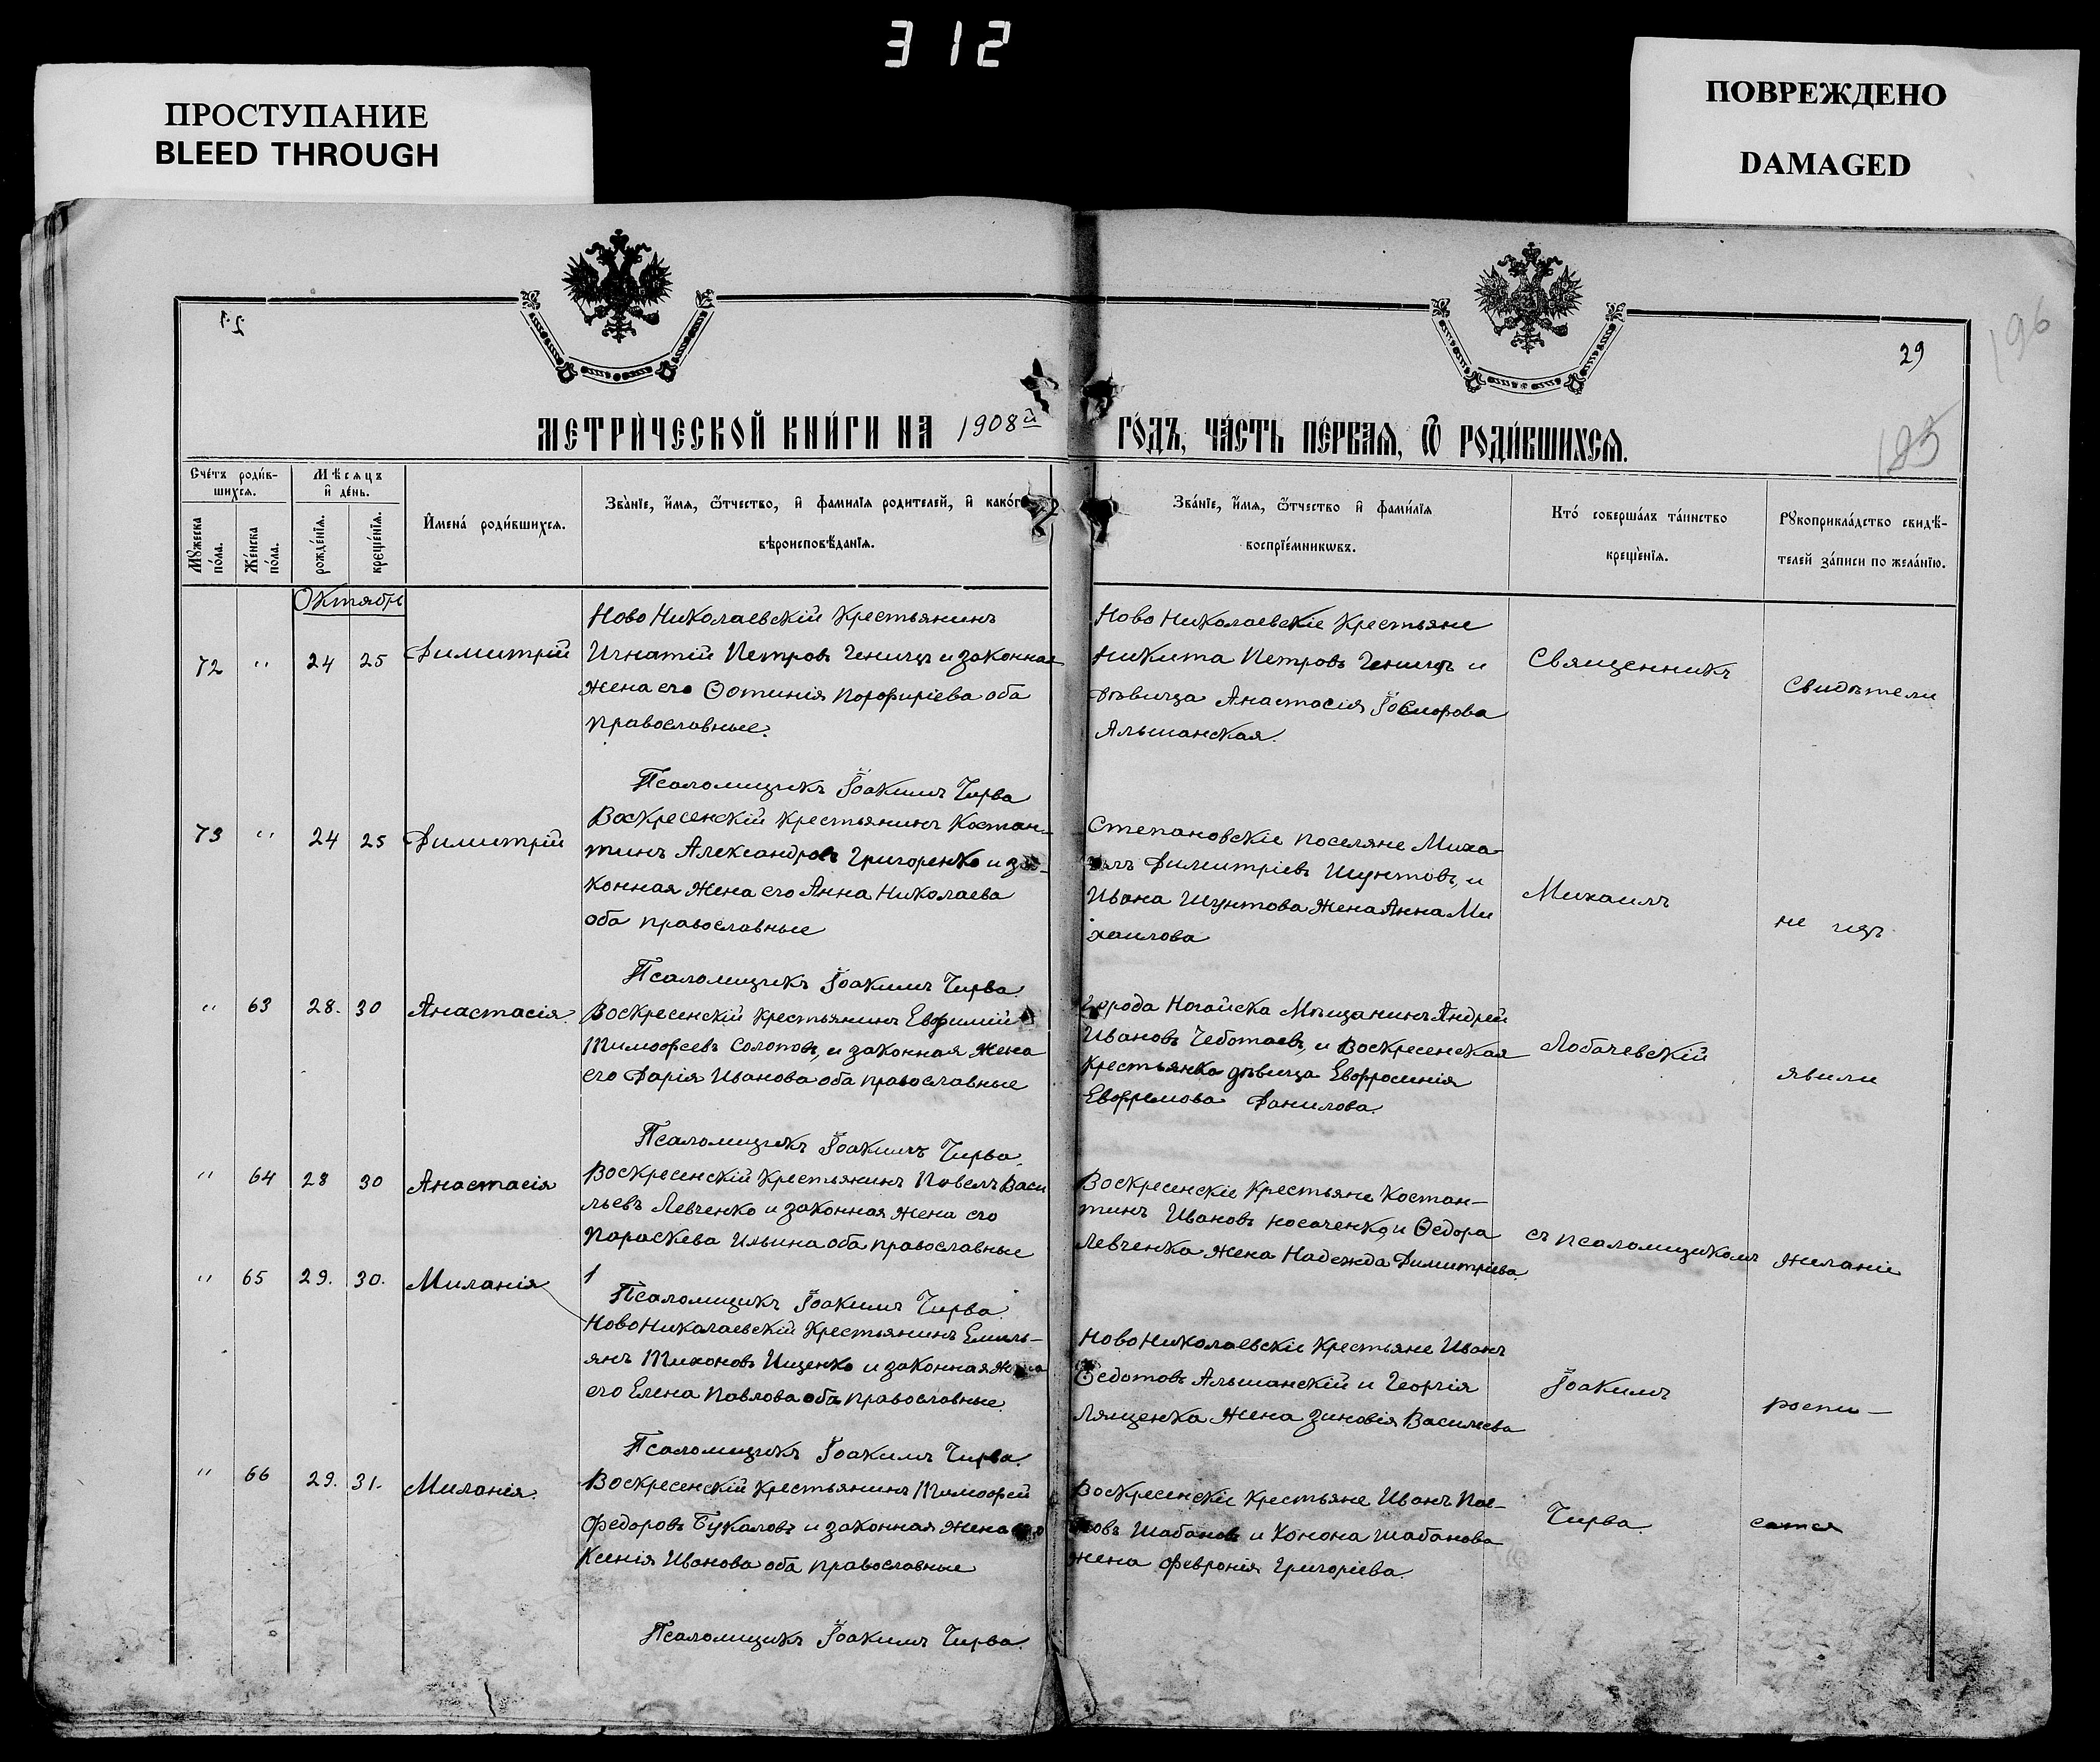 312
ПРОСТУПАНИЕ
BLEED THROUGH
ПОВРЕЖДЕНО
DAMAGED
196
29
185
МЕТРИ́ЧЕСКОЙ КНИ́ГИ НА 1908й ГО́ДЪ, ЧА́СТЬ ПЕ́РВАѦ, Ѿ РОДИ́ВШИХСѦ.
Сче́тъ роди́в-
шихсѧ.
Мѣсѧцъ
и де́нь.
Мꙋжеска
по́ла.
Же́нска
по́ла.
рожде́нїѧ.
креще́нїѧ.
Имена́ роди́вшихсѧ.
Зва́нїе, и́мѧ, ѻ́тчество, и фамилїѧ родителей, и како́гѡ
вѣроисповѣ́данїѧ.
Зва́нїе, и́мѧ, ѻ́тчество и фами́лїѧ
воспрїе́мникѡвъ.
Кто́ соверша́лъ та́инство
креще́нїѧ.
Рꙋкоприкла́дство свидѣ́-
телей за́писи по жела́нїю.
Октябрь
72 " 24 25 Димитрій
Ново Николаевскій Крестьянинъ
Игнатій Петровъ Геницъ и законная
жена его Ѳотинія Порфиріева оба
православные.
Ново Николаевскіе Крестьяне
Никита Петровъ Геницъ и
дѣвица Анастасія
Альшанская.
Священникъ
Свидѣтели
Псаломщикъ Іоакимъ Чирва
73 " 24 25 Димитрій
Воскресенскій Крестьянинъ Костан-
тинъ Александровъ Григоренко и за-
конная жена его Анна Николаева
оба православные
Степановскіе поселяне Миха-
илъ Димитріевъ Шунтовъ, и
Ивана Шунтова жена Анна Ми
хаилова
Михаилъ
не изъ
Псаломщикъ Іоакимъ Чирва.
" 63 28. 30 Анастасія.
Воскресенскій Крестьянинъ Евфимій
Тимофеевъ Солоповъ, и законная жена
его Дарія Иванова оба православные
Города Ногайска Мѣщанинъ Андрей
Ивановъ Чеботаевъ, и Воскресенская
крестьянка дѣвица Евфросинія
Евфремова Данилова.
Лобачевскій
явили
Псаломщикъ Іоакимъ Чирва.
" 64 28 30 Анастасія
Воскресенскій Крестьянинъ Павелъ Васи
льевъ Левченко и законная жена его
Параскева Ильина оба православные
Воскресенскіе Крестьяне Костан-
тинъ Ивановъ Носаченко, и Ѳедора
Левченка жена Надежда Димитріева.
съ псаломщикомъ
желаніе
" 65 29. 30. Миланія
Псаломщикъ Іоакимъ Чирва.
Ново Николаевскій Крестьянинъ Емель-
янъ Тихоновъ Ищенко и законная жена
его Елена Павлова оба православные.
Ново Николаевскіе Крестьяне Иванъ
Ѳедотовъ Альшанскій и Георгія
Лященка жена Зиновія Василіева
Іоакимъ
роспи-
Псаломщикъ Іоакимъ Чирва.
" 66 29. 31. Миланія.
Воскресенскій Крестьянинъ Тимофей
Федоровъ Букаловъ и законная жена его
Ксенія Иванова оба православные
Воскресенскіе Крестьяне Иванъ
Шабановъ и Конона Шабанова
жена Февронія Григоріева.
Чирва.
сатся
Псаломщикъ Іоакимъ Чирва.